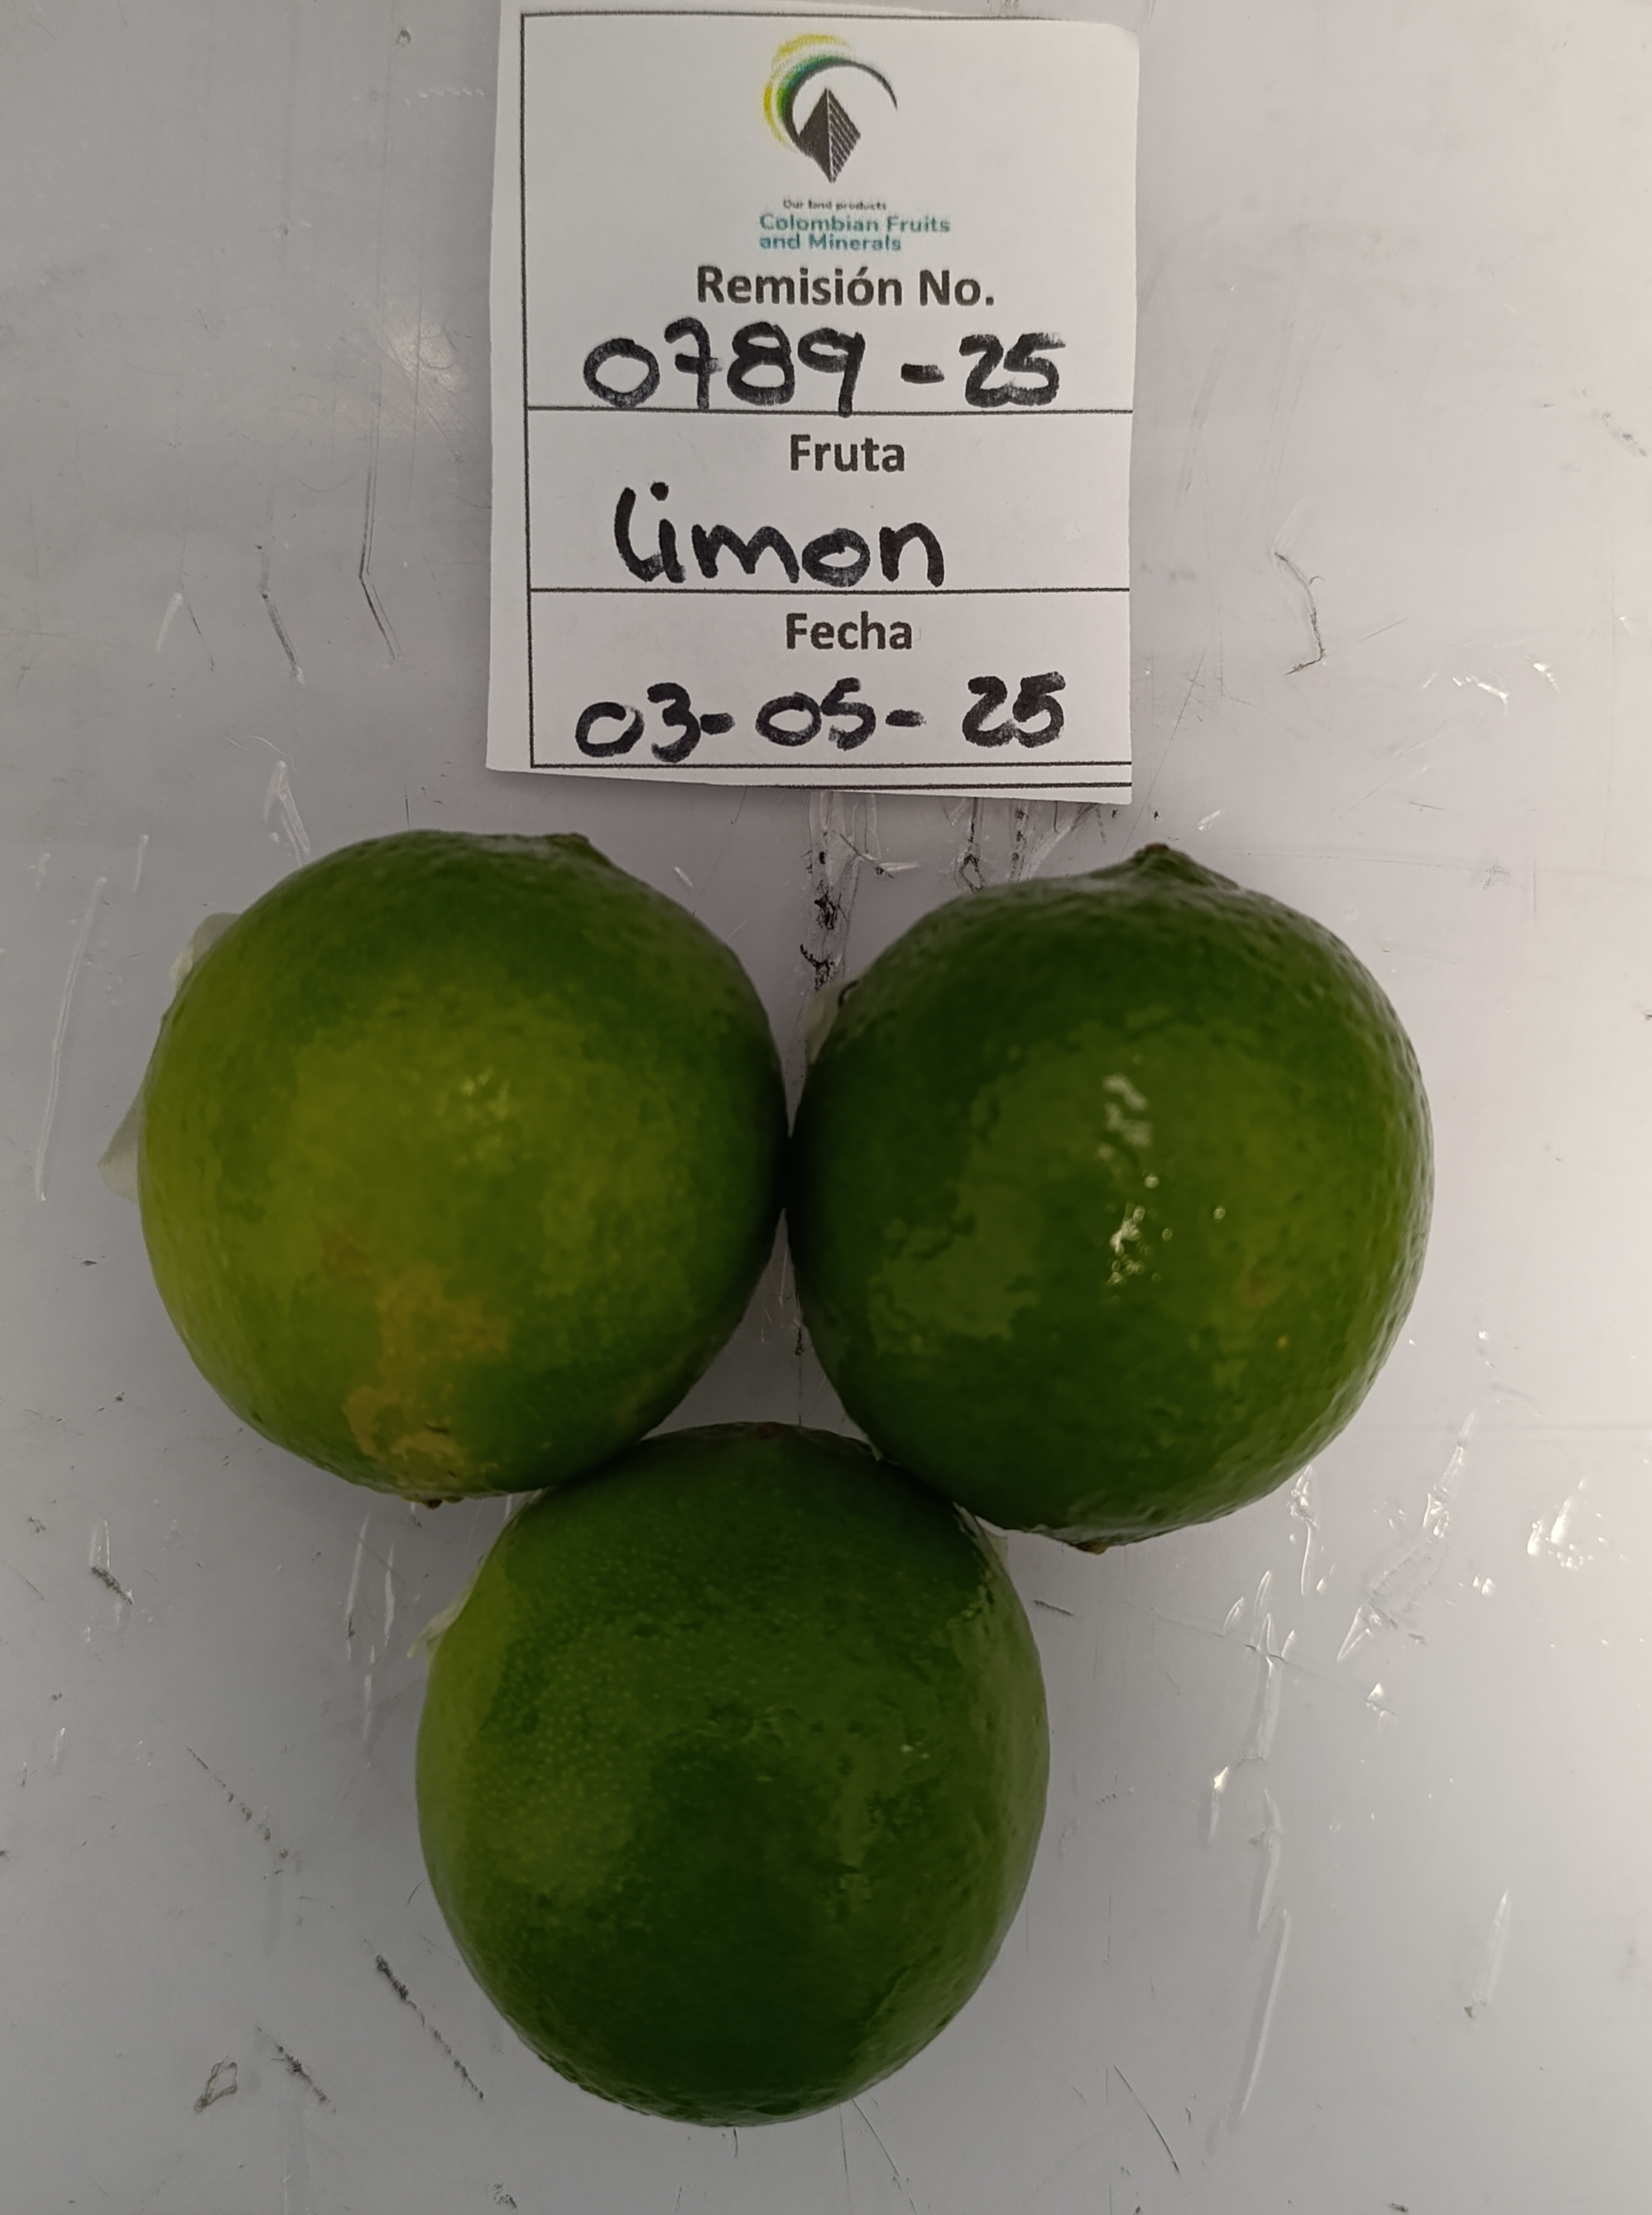 Our land products
Colombian Fruits
and Minerals
Remisión No.
0789-25
Fruta
limon
Fecha
03-05-25